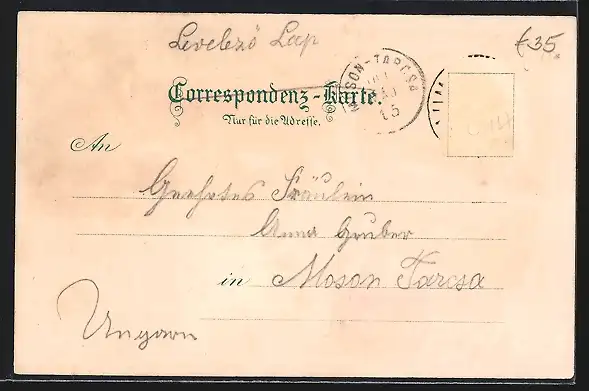 Levelező Lap
£35.
Correspondenz-Karte.
Nur für die Adresse.
MOSON-TARCSA
An
Geehrtes Fräulein
Anna Gruber
in Moson Tarcsa
Ungarn